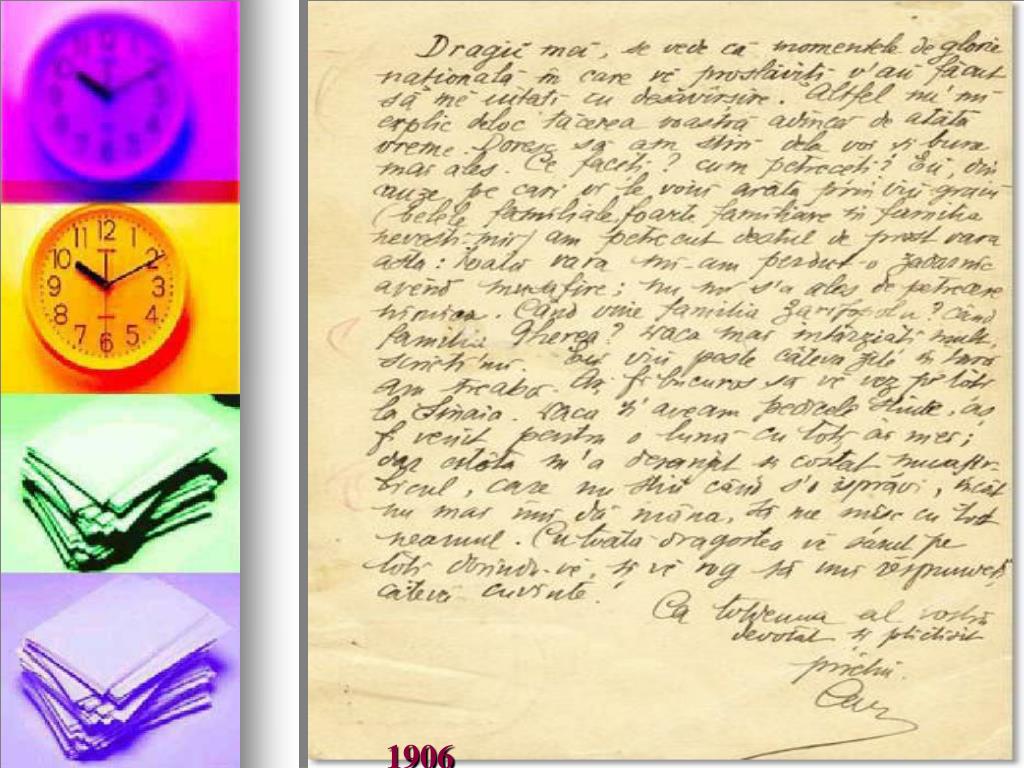 Dragii mei, se vede că momentele de glorie
națională în care vă proslăviți v'au făcut
să mă uitați cu desăvîrșire. Altfel nu'mi
explic deloc tăcerea voastră adîncă de atâta
vreme. Doresc să am știri dela voi și bune
mai ales. Ce faceți? cum petreceți? Eu, din
cauze pe cari vi le voiu arăta prin viu graiu
(belele familiale, foarte familiare în familia
nevesti-mii) am petrecut destul de prost vara
asta: toată vara mi-am perdut-o zadarnic
avênd musafire; nu mi s'a ales de petrecere
nimica. Când vine familia Zarifopolu? când
familia Gherea? Daca mai întârziați mult,
scrieți'mi. Eu viu peste câteva zile în țară
am treabă. Aș fi bucuros să vă vez pe toți
la Sinaia. Daca n'aveam pedicele știute, aș
fi venit pentru o lună cu toți ai mei;
dar m'a deranjat și costat musafir-
lîcul, care nu știu când s'o isprăvi, încât
nu mai mi dă mâna, să me mișc cu tot
neamul. Cu toată dragostea vă sărut pe
toți dorindu-vă, și vă rog să'mi răspundeți
câteva cuvinte.
Ca totdeuna al vostru
devotat și plicticsit
prietin.
1906